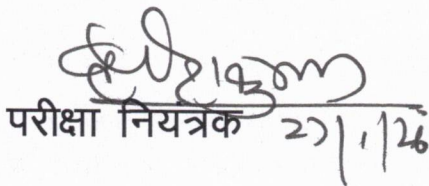 परीक्षा नियंत्रक 27/1/26